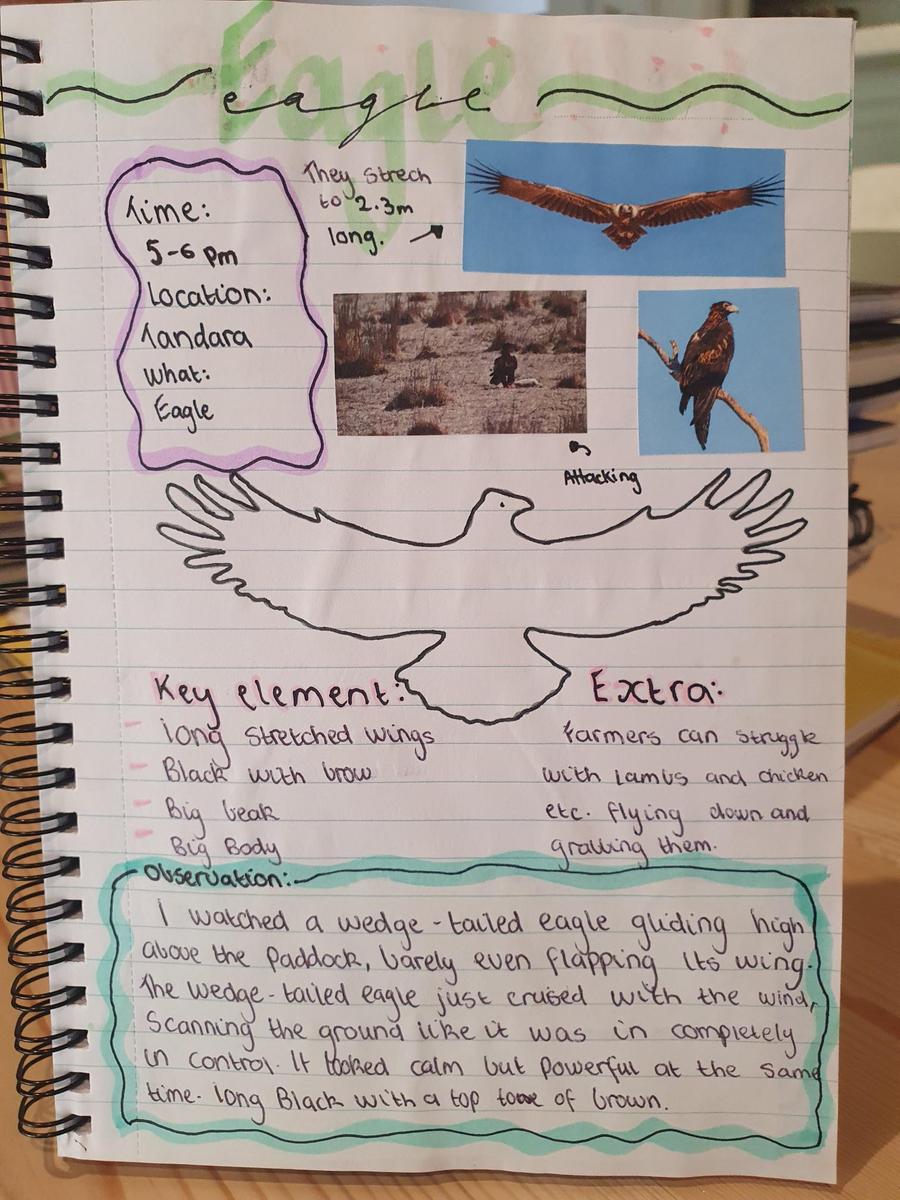 Eagle
eagle
Time:
5-6 pm
Location:
Tandara
what:
Eagle
They strech
to 2.3m
long.
Attacking
Key element:
long stretched wings
Black with brow
Big beak
Big Body
Extra:
farmers can struggle
with lambs and chicken
etc. flying down and
grabbing them.
Observation:
I watched a wedge-tailed eagle gliding high
above the Paddock, barely even flapping its wing.
The wedge-tailed eagle just cruised with the wind,
Scanning the ground like it was in completely
in control. It looked calm but powerful at the same
time. long Black with a top tone of brown.